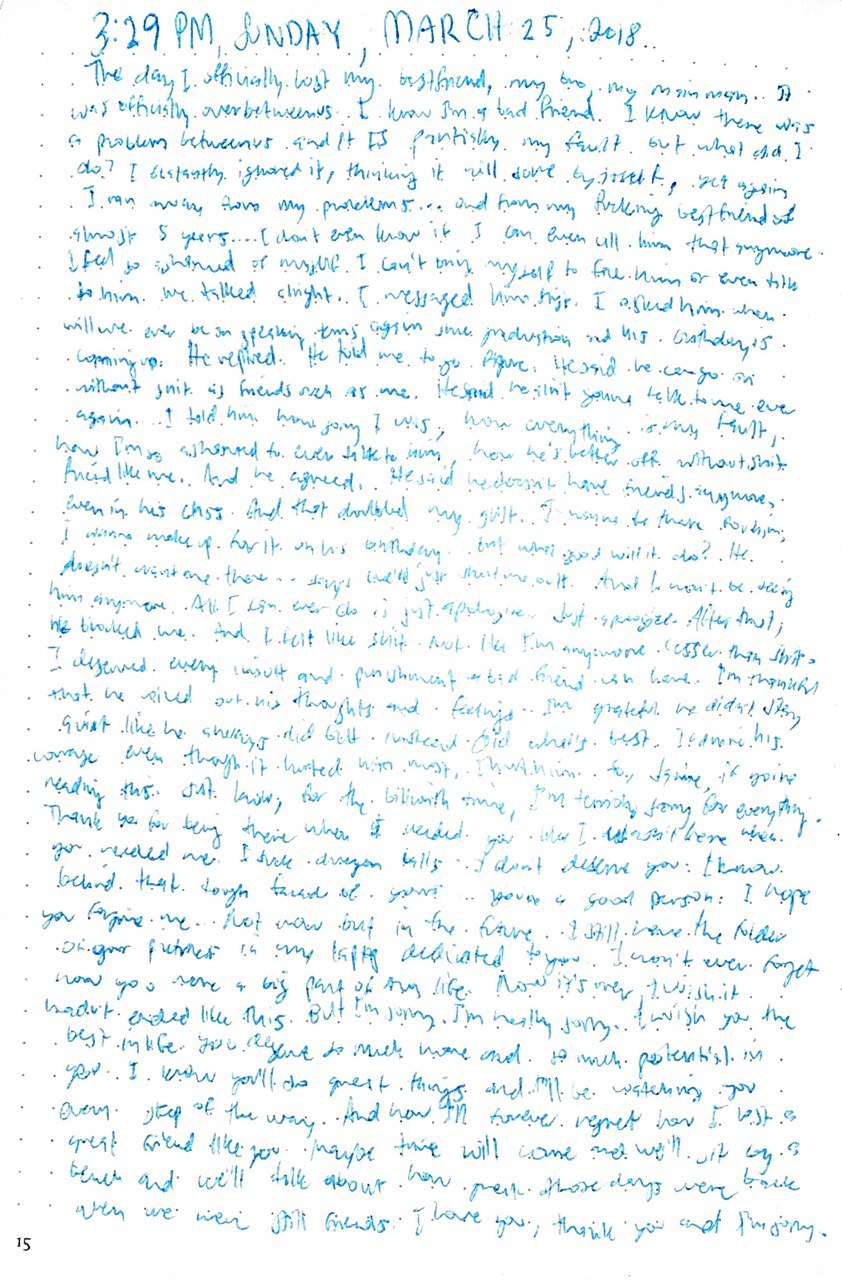 3:29 PM, SUNDAY, MARCH 25, 2018
The day I officially lost my bestfriend, my bro, my main man. It
was officially over between us. I know I'm a bad friend. I know there was
a problem between us and it IS partially my fault but what did I
do? I instantly ignored it, thinking it will solve by itself, yet again
I ran away from my problems... and from my fucking bestfriend of
almost 5 years.... I don't even know if I can even call him that anymore.
I feel so ashamed of myself. I can't bring myself to face him or even talk
to him. We talked alright. I messaged him first. I asked him when
will we ever be on speaking terms again since graduation and his birthday is
coming up. He replied. He told me to go figure. He said he can go on
without shit as friends such as me. He said he ain't gonna talk to me ever
again... I told him how sorry I was, how everything is my fault,
how I'm so ashamed to even talk to him, how he's better off without shit
friend like me. And he agreed. He said he doesn't have friends anymore,
even in his class. And that doubled my guilt. I wanna be there for him,
I wanna make up for it on his birthday. but what good will it do? He
doesn't want me there... says he'll just shut me out. And I won't be seeing
him anymore. All I can ever do is just apologize. Just apologize. After that,
He blocked me. And I felt like shit. Not like I'm anymore lesser than shit.
I deserved every insult and punishment a bad friend can have. I'm thankful
that he voiced out his thoughts and feelings. I'm grateful he didn't stay
quiet like he always did but instead did what's best. I admire his
courage even though it hurted him most, I hurt him. So, if you're
reading this. Just know, for the billionth time, I'm terribly sorry for everything.
Thank you for being there when I needed you like I wasn't here when
you needed me. I don't deserve you. I know
behind that tough facade of yours... you're a good person. I hope
you forgive me... Not now but in the future. I still have the folder
of your pictures in my laptop dedicated to you. I won't ever forget
how you were a big part of my life. Now it's over, I wish it
hadn't ended like this. But I'm sorry. I'm really sorry. I wish you the
best in life. You deserve so much more and so much potential in
you. I know you'll do great things and I'll be watching you
every step of the way. And how I'll forever regret how I lost a
great friend like you. Maybe time will come and we'll sit by a
bench and we'll talk about how great those days were back
when we were still friends. I love you, thank you and I'm sorry.
15